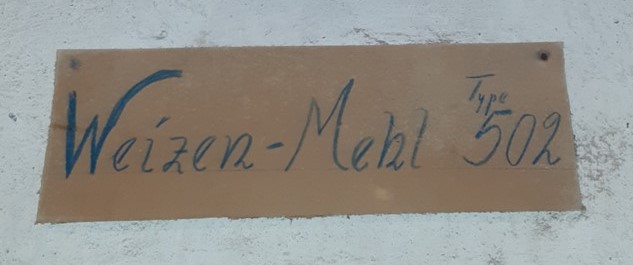 Weizen-Mehl Type 502